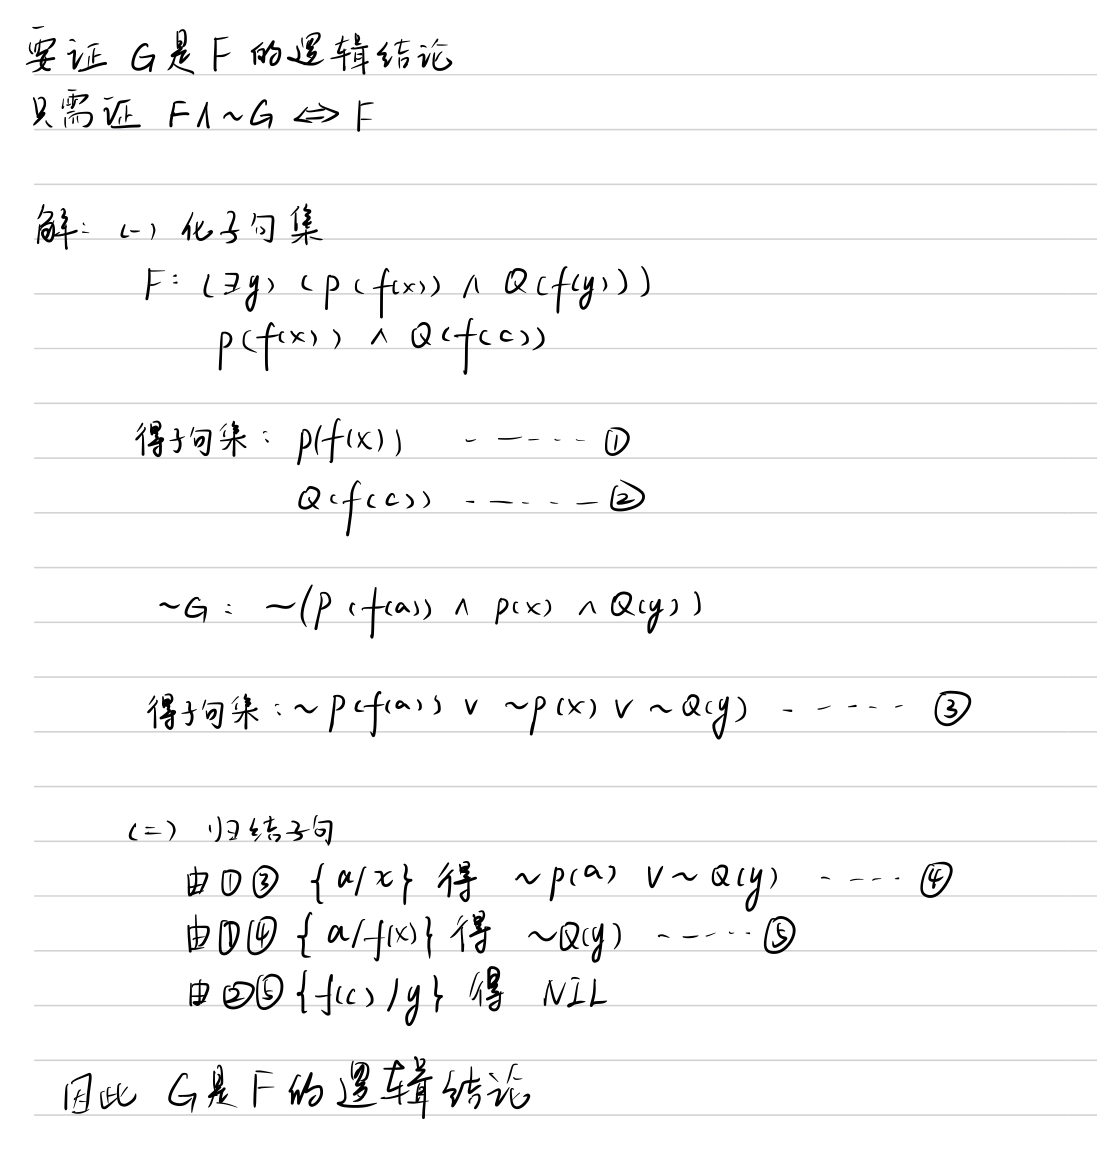 要证 G是F的逻辑结论
只需证 F∧~G ⇔ F
解: (一) 化子句集
F: (∃y) (P(f(x)) ∧ Q(f(y)))
P(f(x)) ∧ Q(f(c))
得子句集: P(f(x)) ------ ①
Q(f(c)) ------ ②
~G: ~(P(f(a)) ∧ P(x) ∧ Q(y))
得子句集: ~P(f(a)) ∨ ~P(x) ∨ ~Q(y) ------ ③
(二) 归结子句
由①③ {a/x} 得 ~P(a) ∨ ~Q(y) ----- ④
由①④ {a/f(x)} 得 ~Q(y) ------ ⑤
由②⑤ {f(c)/y} 得 NIL
因此 G是F的逻辑结论